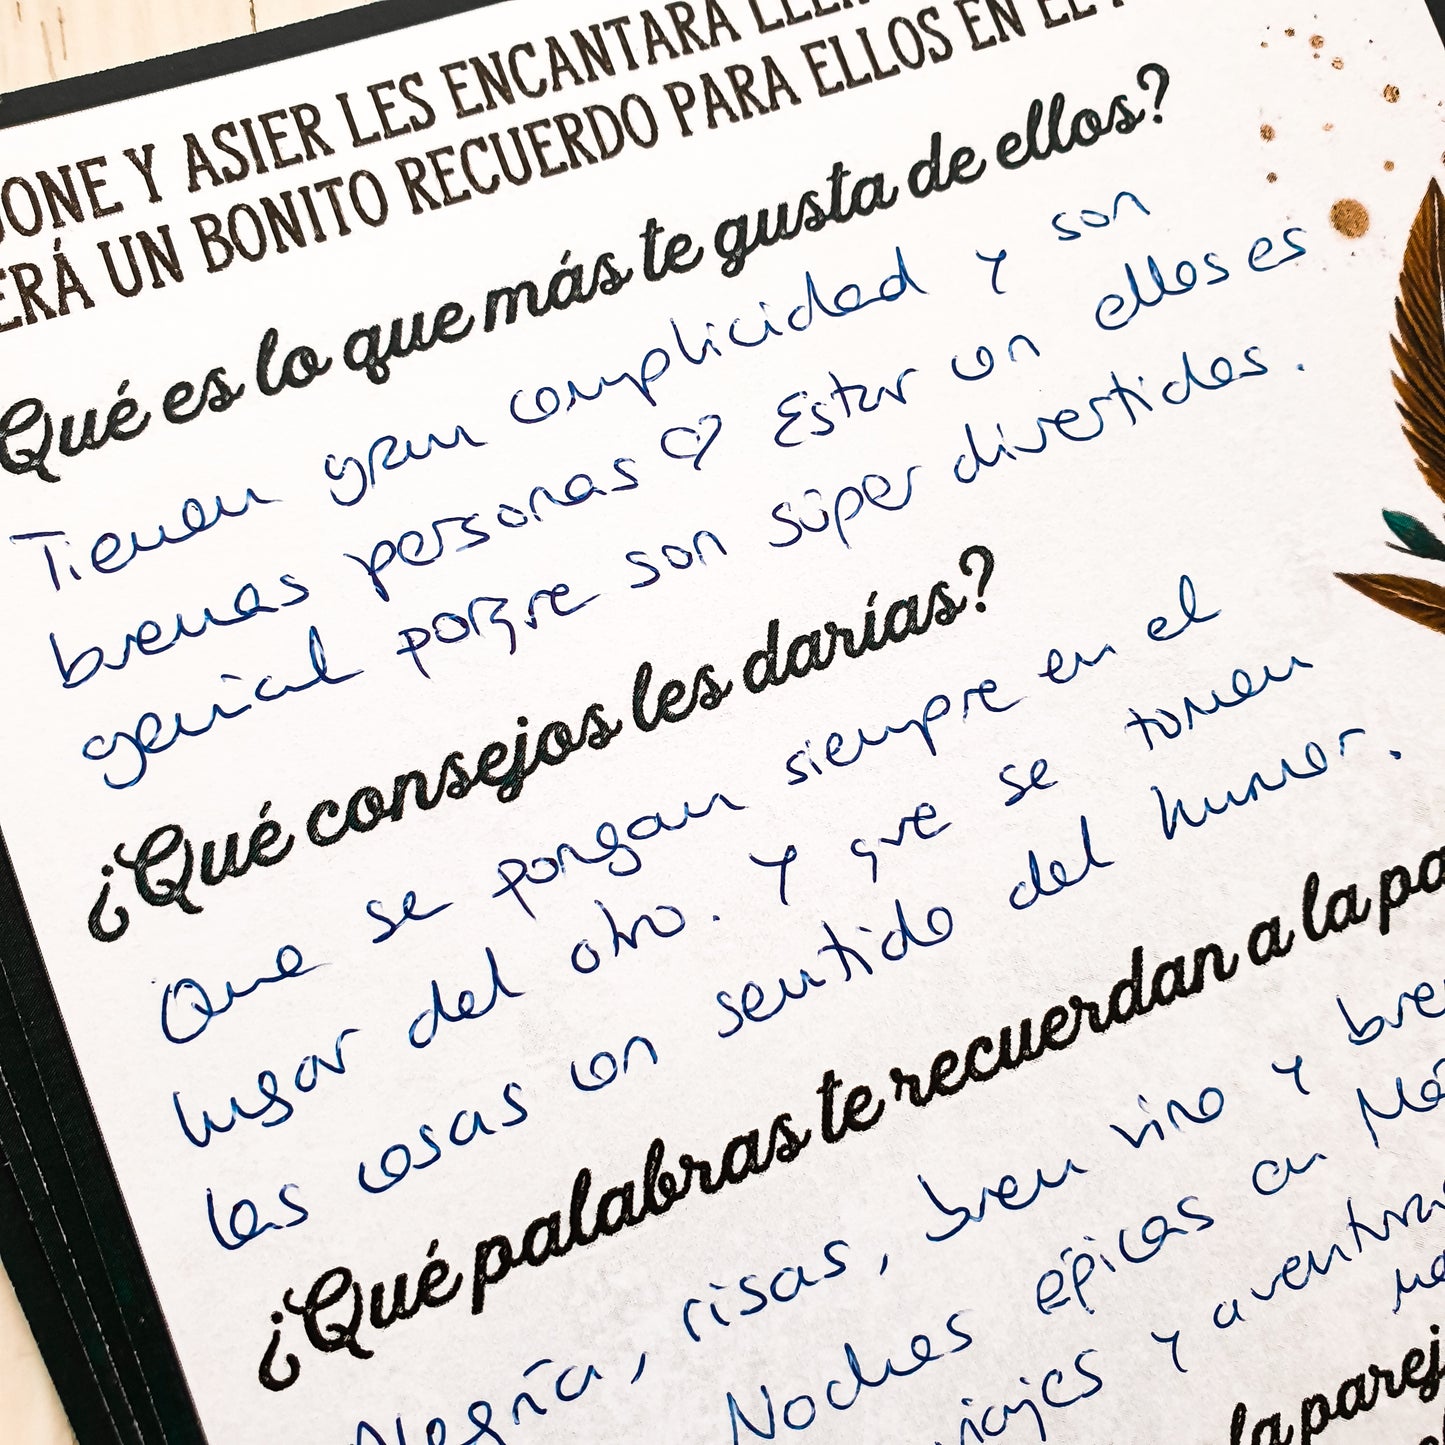 ONE Y ASIER LES ENCANTARÁ
ERÁ UN BONITO RECUERDO PARA ELLOS EN EL
Qué es lo que más te gusta de ellos?
Tienen gran complicidad y son
buenas personas ♡ Estar con ellos es
genial porque son súper divertidos.
¿Qué consejos les darías?
Que se pongan siempre en el
lugar del otro. Y que se tomen
las cosas con sentido del humor.
¿Qué palabras te recuerdan a la pa
Alegría, risas, buen vino y bue
Noches épicas en
viajes y aventuras
la parej